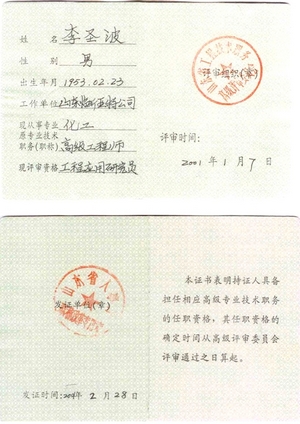 姓名 李圣波
性别 男
出生年月 1953.02.23
工作单位 山东
公司
现从事专业 化工
原专业技术
职务(职称) 高级工程师
现评审资格 工程应用研究员
评审组织(章)
评审时间:
2001年1月7日
山东省人
发证单位(章)
发证时间:2001年2月28日
本证书表明持证人具备
担任相应高级专业技术职务
的任职资格,其任职资格的
确定时间从高级评审委员会
评审通过之日算起。